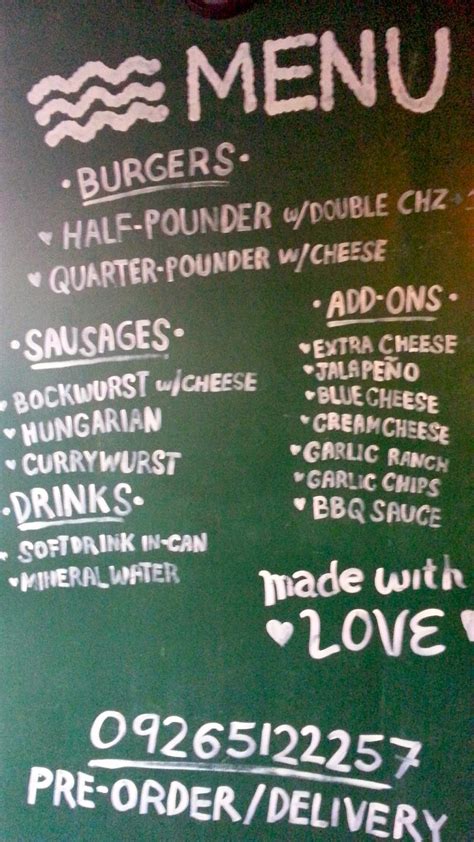 MENU
• BURGERS •
♥ HALF-POUNDER w/DOUBLE CHZ
♥ QUARTER-POUNDER w/CHEESE
• SAUSAGES •
• BOCKWURST w/CHEESE
♥ HUNGARIAN
♥ CURRYWURST
• DRINKS •
• SOFTDRINK IN-CAN
♥ MINERAL WATER
• ADD-ONS •
♥ EXTRA CHEESE
♥ JALAPEÑO
♥ BLUE CHEESE
♥ CREAM CHEESE
♥ GARLIC RANCH
♥ GARLIC CHIPS
♥ BBQ SAUCE
made with
♥ LOVE ♥
09265122257
PRE-ORDER/DELIVERY